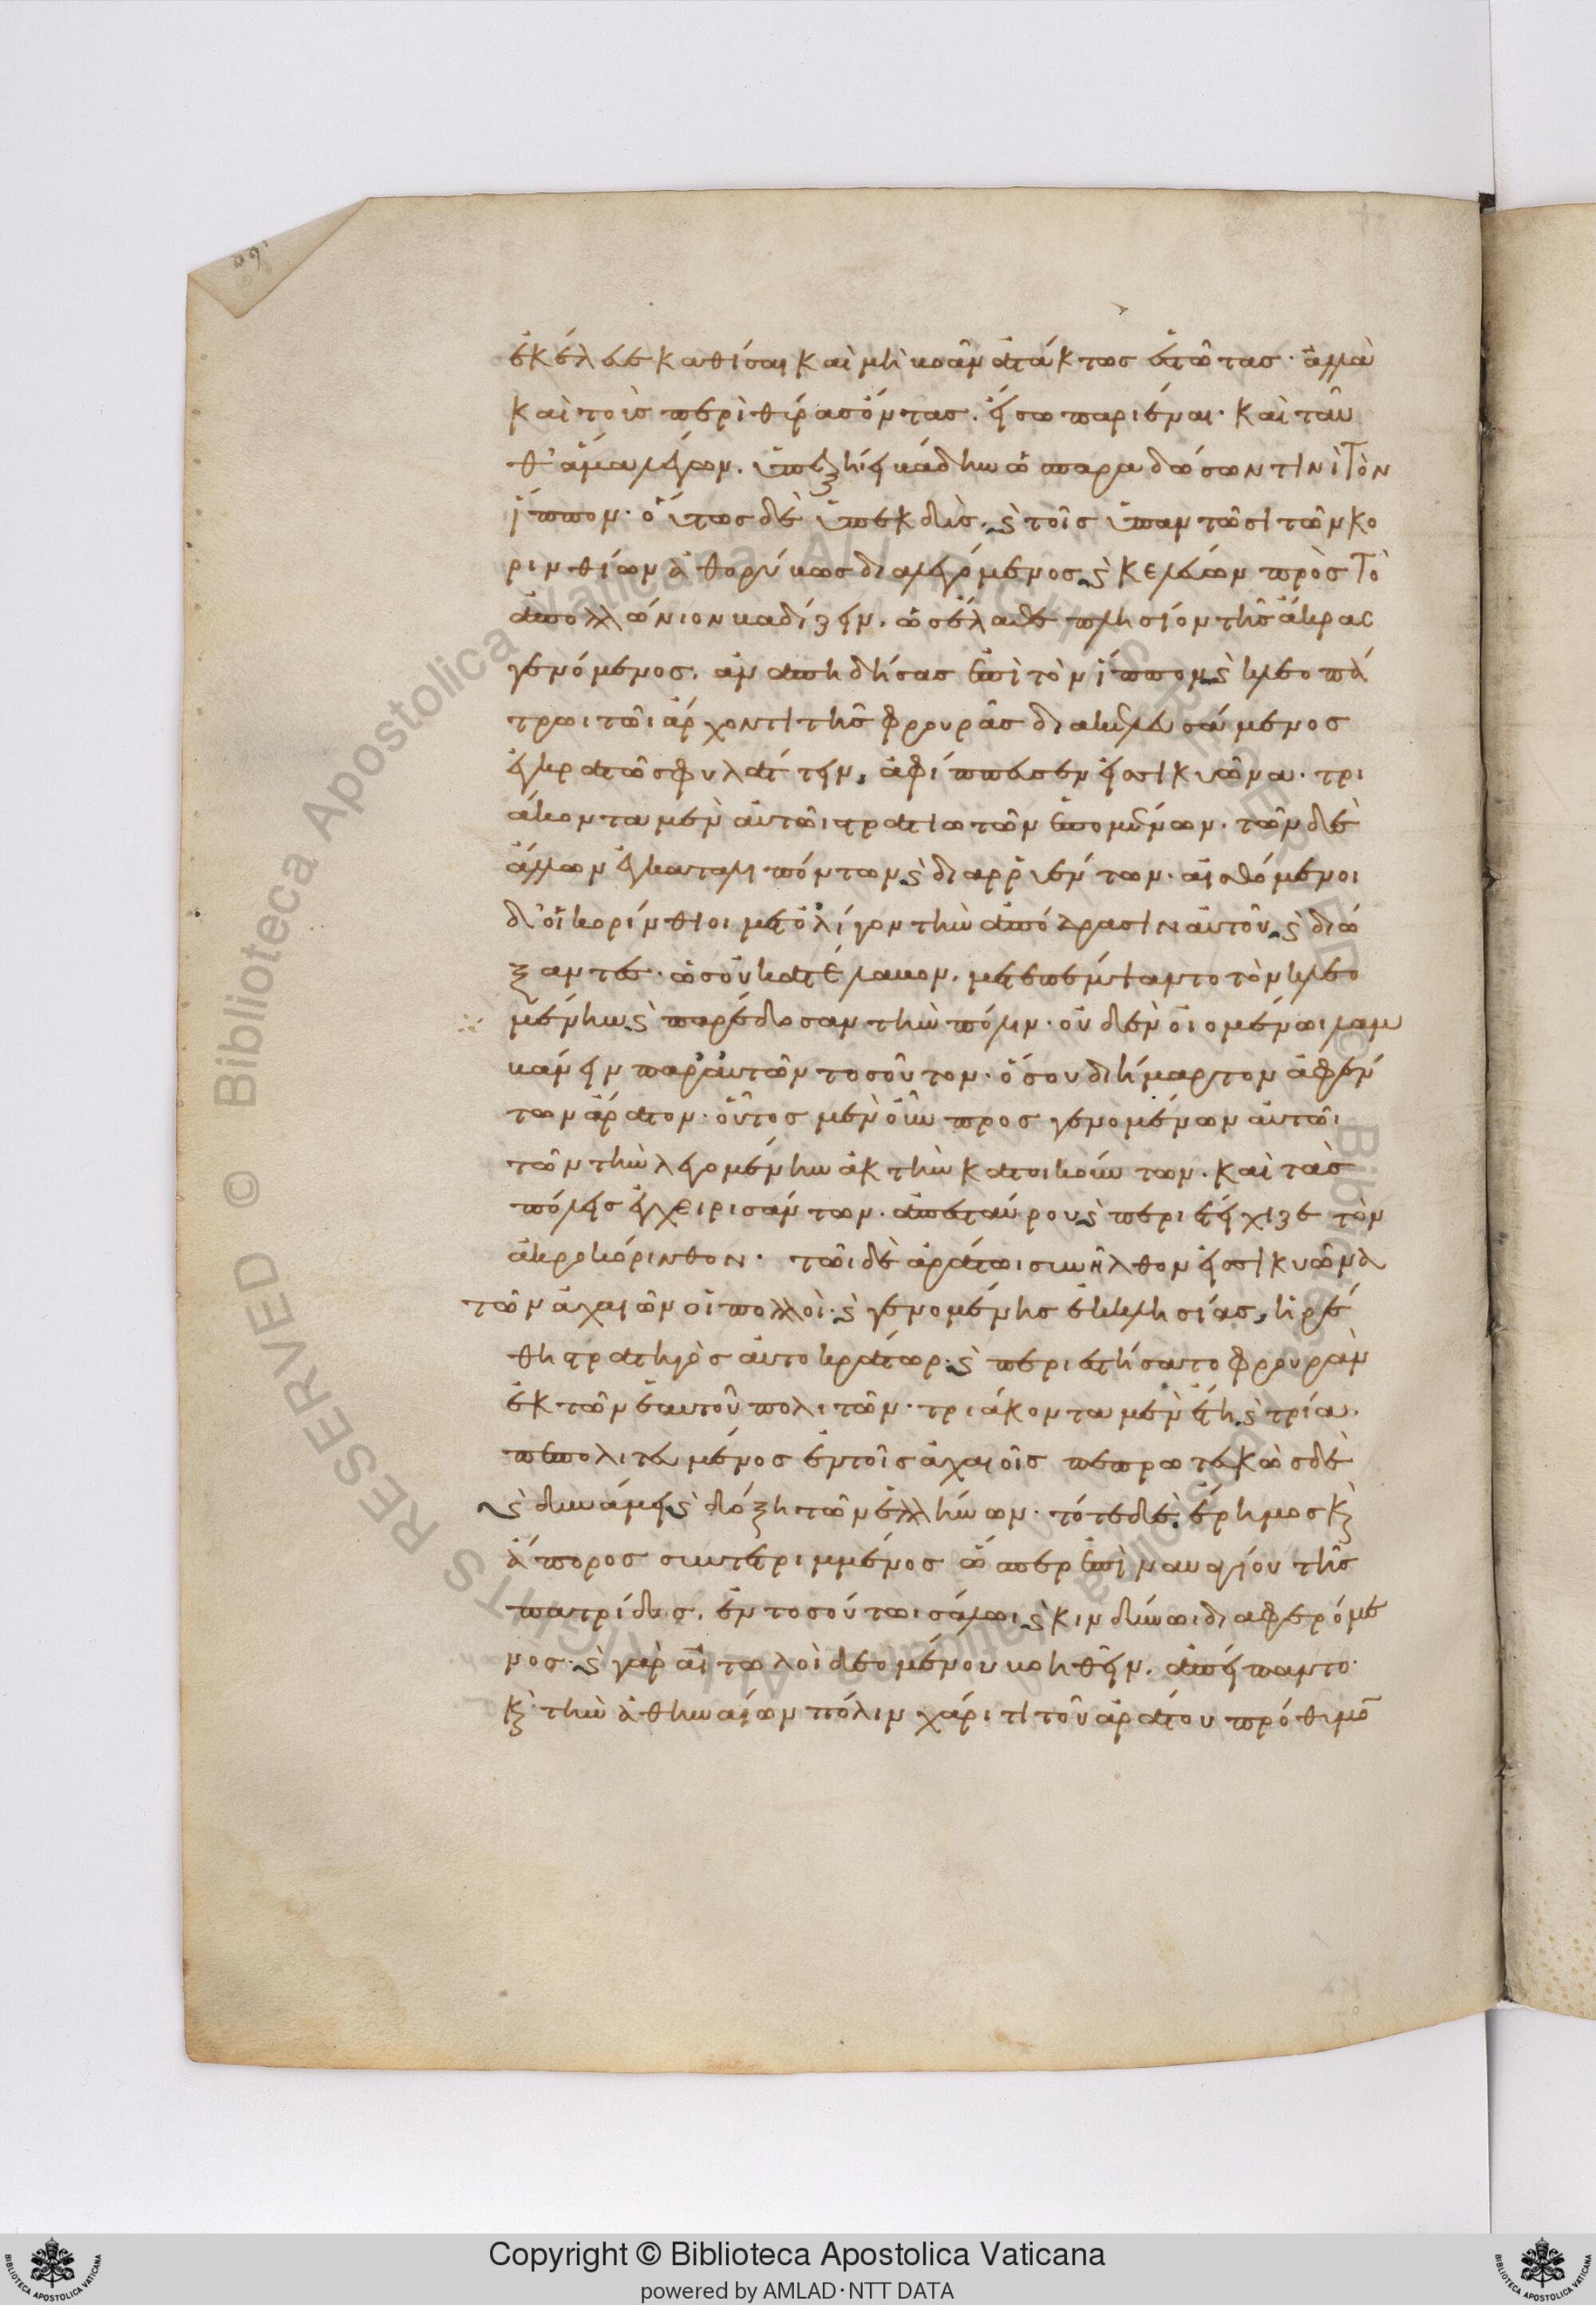 ἐκέλευε καθίσαι καὶ μὴ βοᾶν ἀτάκτως ἑστῶτας· ἀλλὰ
καὶ τοὺς περὶ θύρας ὄντας. εἴσω παριέναι· καὶ ταῦ
θ' ἅμα λέγων. ὑπεξήει βάδην ὡς παραδώσων τινὶ τὸν
ἵππον· οὕτως δὲ ὑπεκδὺς. ϗ τοῖς ὑπαντῶσι τῶν κο
ρινθίων ἀθορύβως διαλεγόμενος ϗ κελεύων πρὸς τὸ
ἀπολλώνιον βαδίζειν. ὡς ἔλαθε πλησίον τῆς ἄκρας
γενόμενος. ἀναπηδήσας ἐπὶ τὸν ἵππον ϗ κλεοπά
τρωι τῶι ἄρχοντι τῆς φρουρᾶς διακελευσάμενος
ἐγκρατῶς φυλάττειν, ἀφίππευσεν εἰς σικυῶνα· τρι
άκοντα μὲν αὐτῶι στρατιωτῶν ἑπομένων. τῶν δὲ
ἄλλων ἐγκαταλιπόντων ϗ διαρρυέντων. αἰσθόμενοι
δ' οἱ κορίνθιοι μετ' ὀλίγον τὴν ἀπόδρασιν αὐτοῦ ϗ διώ
ξαντες. ὡς οὐ κατέλαβον. μετεπέμψαντο τὸν κλεο
μένην ϗ παρέδοσαν τὴν πόλιν· οὐδὲν οἰομένωι λαμ
βάνειν παρ' αὐτῶν τοσοῦτον. ὅσου διήμαρτον ἀφέν
των ἄρατον. οὗτος μὲν οὖν προσγενομένων αὐτῶι
τῶν τὴν λεγομένην ἀκτὴν κατοικούντων. καὶ τὰς
πόλεις ἐγχειρισάντων. ἀπεσταύρου ϗ περιετείχιζε τὸν
ἀκροκόρινθον. τῶι δὲ ἀράτωι συνῆλθον εἰς σικυῶνα
τῶν ἀχαιῶν οἱ πολλοὶ. ϗ γενομένης ἐκκλησίας, ἡρέ
θη στρατηγὸς αὐτοκράτωρ. ϗ περιεστήσατο φρουρὰν
ἐκ τῶν ἑαυτοῦ πολιτῶν· τριάκοντα μὲν ἔτη ϗ τρία.
πεπολιτευμένος ἐν τοῖς ἀχαιοῖς πεπρωτευκὼς δὲ
ϗ δυνάμει ϗ δόξη τῶν ἑλλήνων. τότε δὲ ἔρημος ϗ
ἄπορος συντετριμμένος ὥσπερ ἐπὶ ναυαγίου τῆς
πατρίδος. ἐν τοσούτωι σάλωι ϗ κινδύνωι διαφερόμε
νος. ϗ γὰρ αἰτωλοὶ δεομένου βοηθεῖν. ἀπείπαντο.
ϗ τὴν ἀθηναίων πόλιν χάριτι τοῦ ἀράτου πρόθυμο